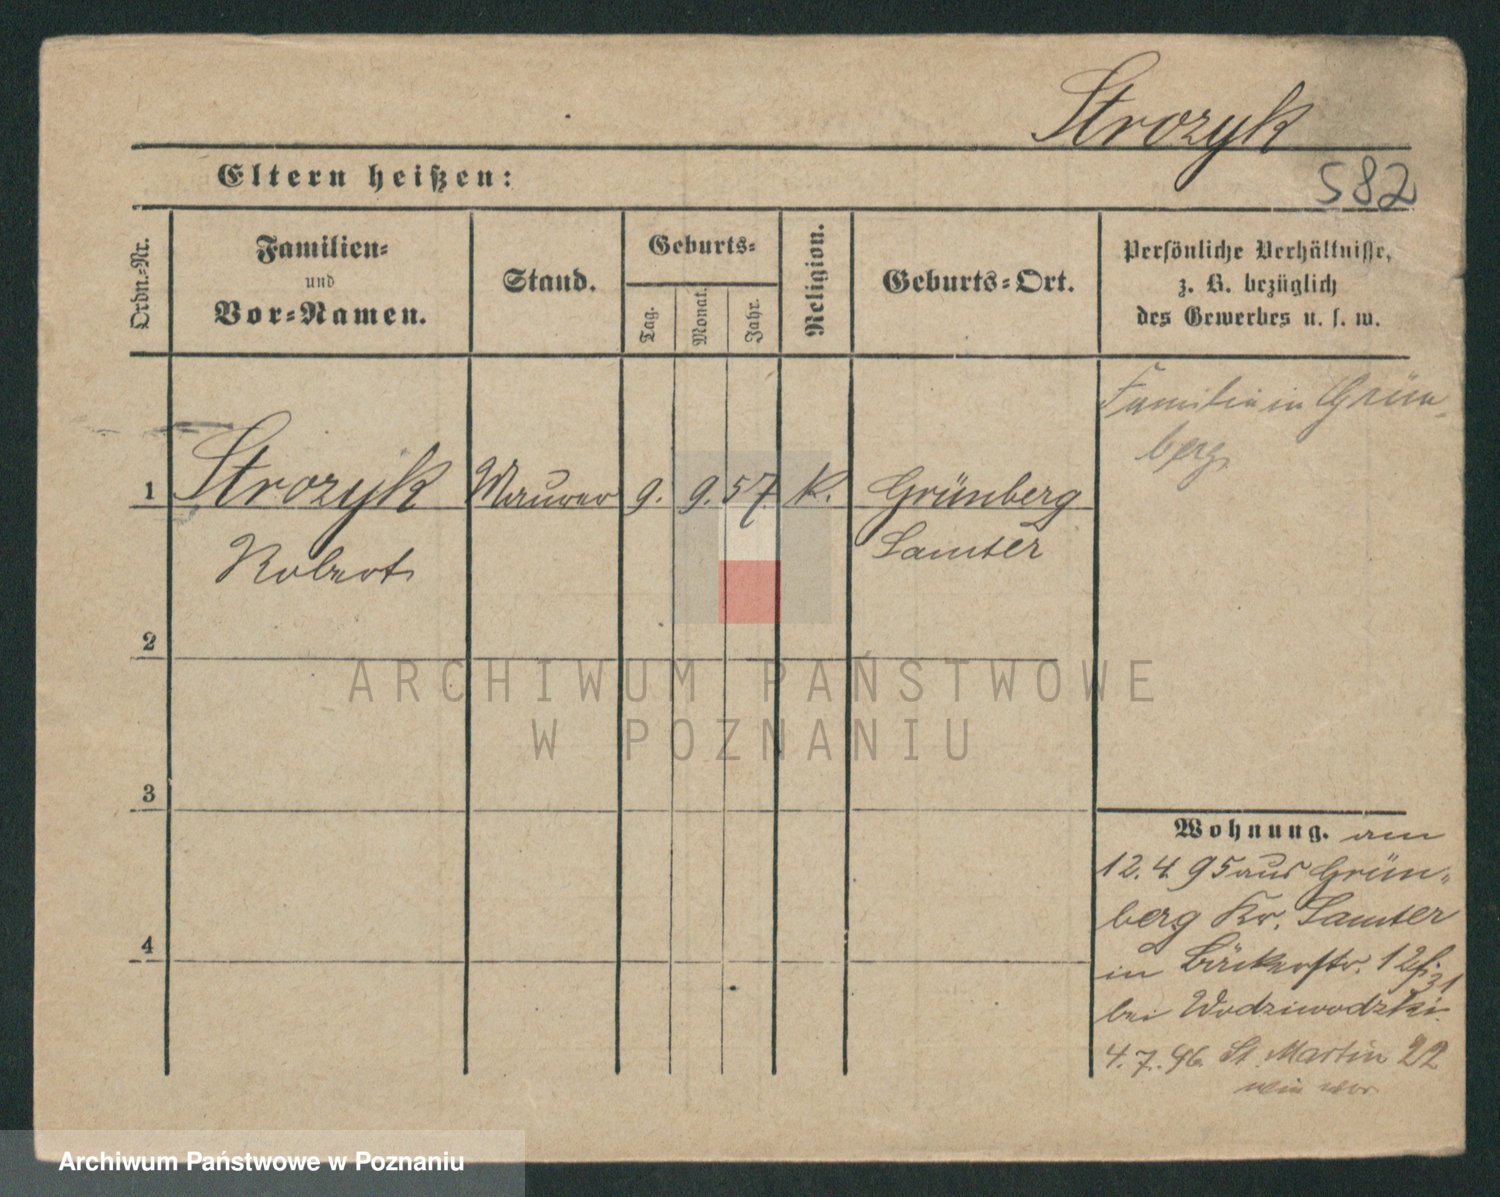 Strozyk
Eltern heißen:
582
Ordn.-Nr.
Familien-
und
Vor-Namen.
Stand.
Geburts-
Tag.
Monat.
Jahr.
Religion.
Geburts-Ort.
Persönliche Verhältnisse,
z. B. bezüglich
des Gewerbes u. s. w.
Familie in Grün-
berg
1 Strozyk Maurer 9. 9. 57. K. Grünberg
Robert Samter
2
ARCHIWUM PAŃSTWOWE
W POZNANIU
3
4
Wohnung. am
12. 4. 95 aus Grün-
berg Kr. Samter
in Bäckerstr. 12
bei
4. 7. 96. St. Martin 22
wie vor
Archiwum Państwowe w Poznaniu